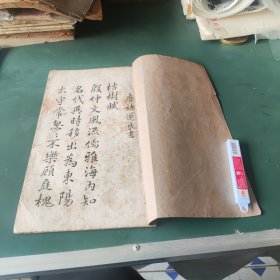 唐褚遂良書
枯樹賦
殷仲文風流儒雅海內知
名代異時移出為東陽
太守常忽忽不樂顧庭槐